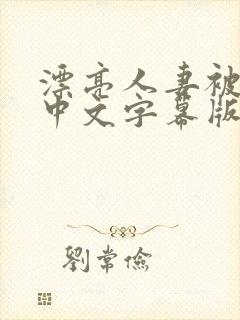 漂亮人妻被
中文字幕版
劉常儉